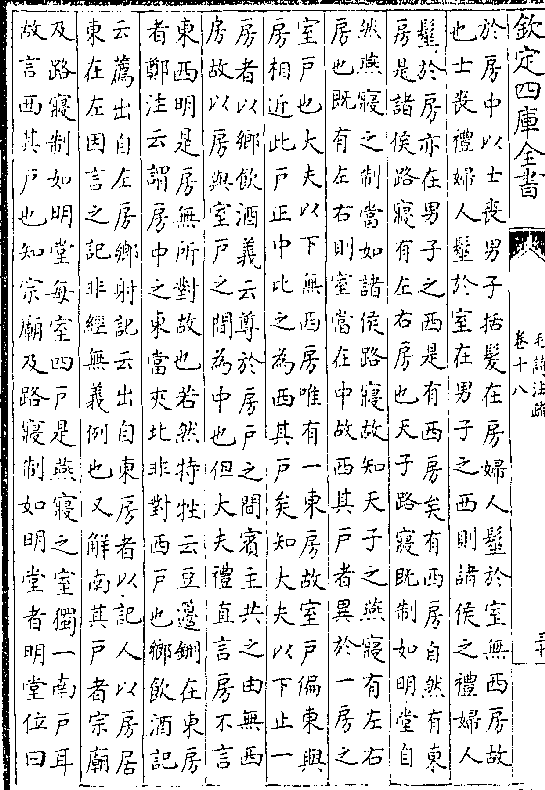 欽定四庫全書
毛詩注疏
卷十八
於房中以士喪男子括髮在房婦人髽於室無西房故
也士喪禮婦人髽於室在男子之西則諸侯之禮婦人
髽於房亦在男子之西是有西房矣有西房自然有東
房是諸侯路寢有左右房也天子路寢既制如明堂自
然燕寢之制當如諸侯路寢故知天子之燕寢有左右
房也既有左右則室當在中故西其戶者異於一房之
室戶也大夫以下無西房唯有一東房故室戶偏東與
房相近此戶正中比之為西其戶矣知大夫以下止一
房者以鄉飲酒義云尊於房戶之間賓主共之由無西
房故以房與室戶之間為中也但大夫禮直言房不言
東西明是房無所對故也若然特牲云豆籩鉶在東房
者鄭注云謂房中之東當夾北非對西戶也鄉飲酒記
云薦出自左房鄉射記云出自東房者以記人以房居
東在左因言之記非經無義例也又解南其戶者宗廟
及路寢制如明堂每室四戶是燕寢之室獨一南戶耳
故言西其戶也知宗廟及路寢制如明堂者明堂位曰